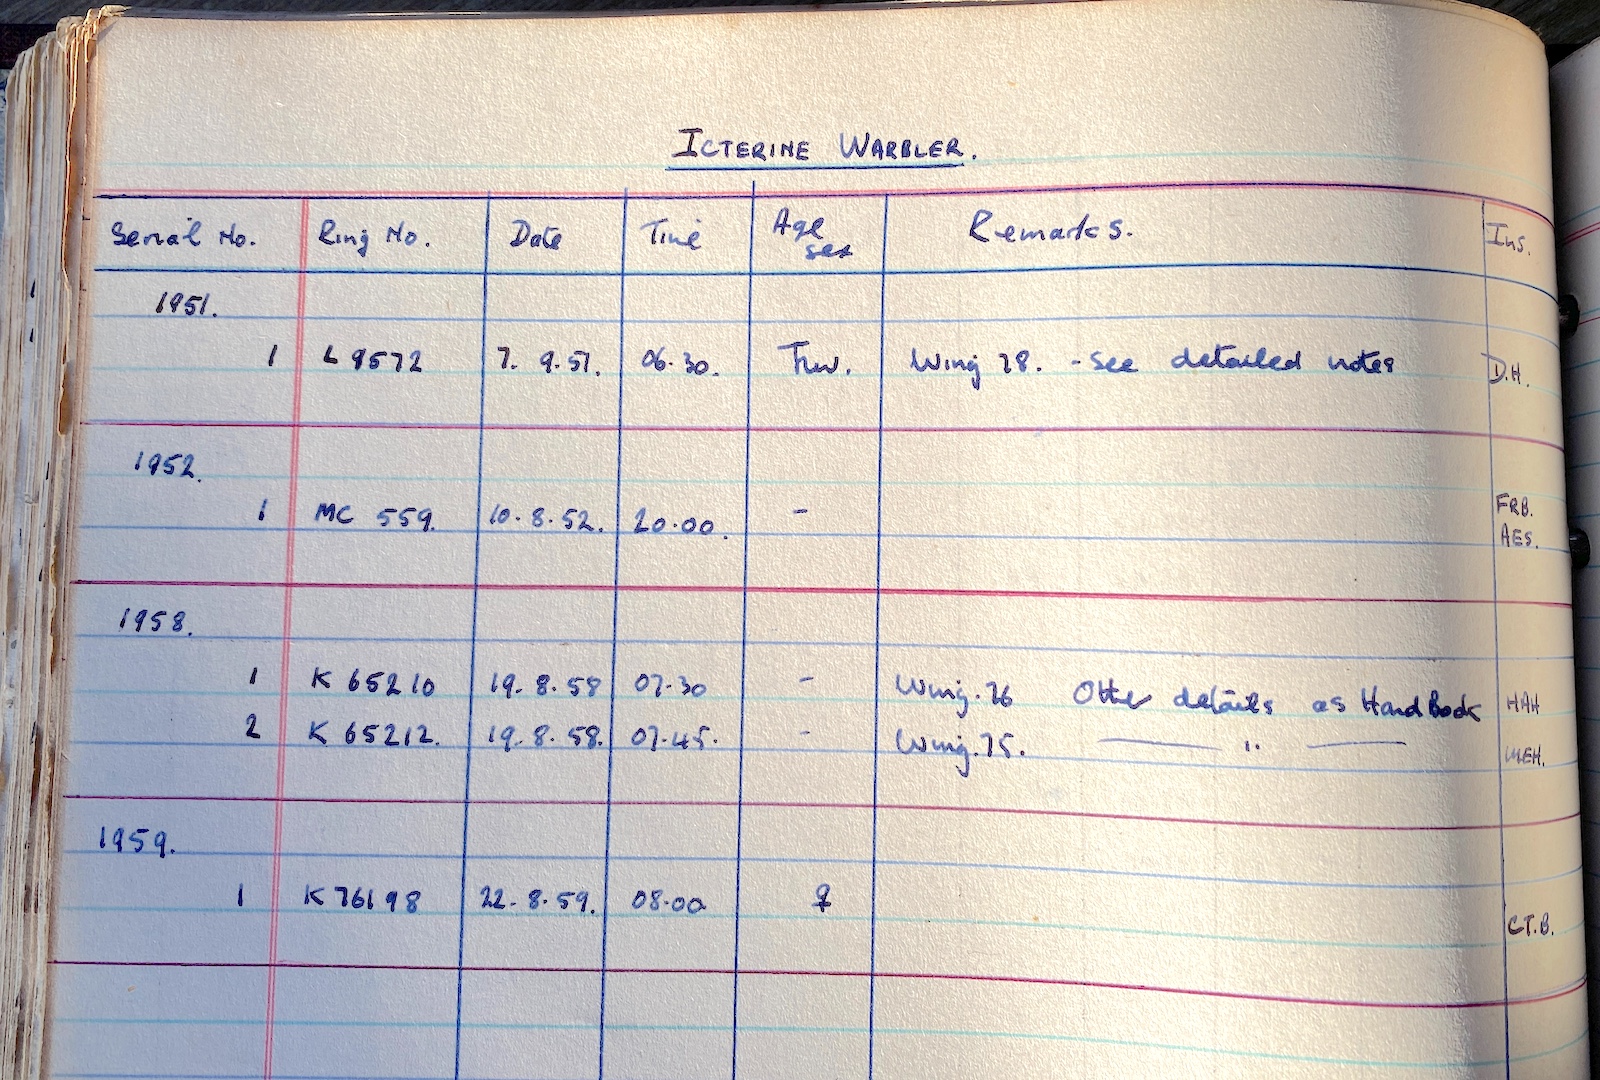 ICTERINE WARBLER.
Serial No. Ring No. Date Time Age sex Remarks. Ins.
1951.
1 L 9572 7. 9.51. 06.30. Juv. Wing 78. - See detailed notes D.H.
1952.
1 MC 559. 10.8.52. 20.00. - FRB. AES.
1958.
1 K 65210 19.8.58 07.30 - Wing.76 Other details as HandBook HAH
2 K 65212. 19.8.58. 07.45. - Wing.75. — " — MEH.
1959.
1 K 76198 22.8.59. 08.00 ♀ CT.B.